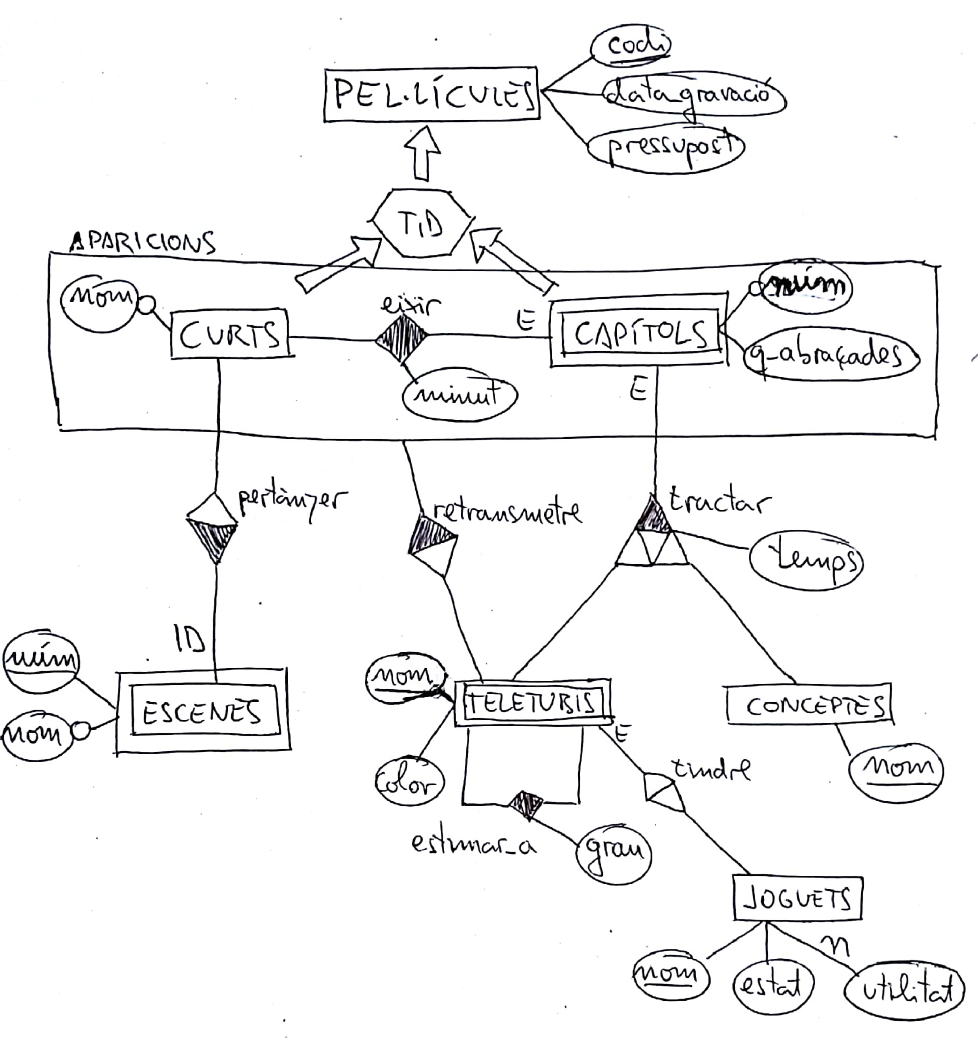 codi
PEL·LÍCULES
data_gravació
pressupost
T,D
APARICIONS
nom
eixir
núm
CURTS
E
CAPÍTOLS
q_abraçades
minut
E
pertànyer
retransmetre
tractar
temps
ID
núm
nom
ESCENES
nom
TELETUBIS
E
CONCEPTES
nom
color
tindre
estimar_a
grau
JOGUETS
n
nom
estat
utilitat